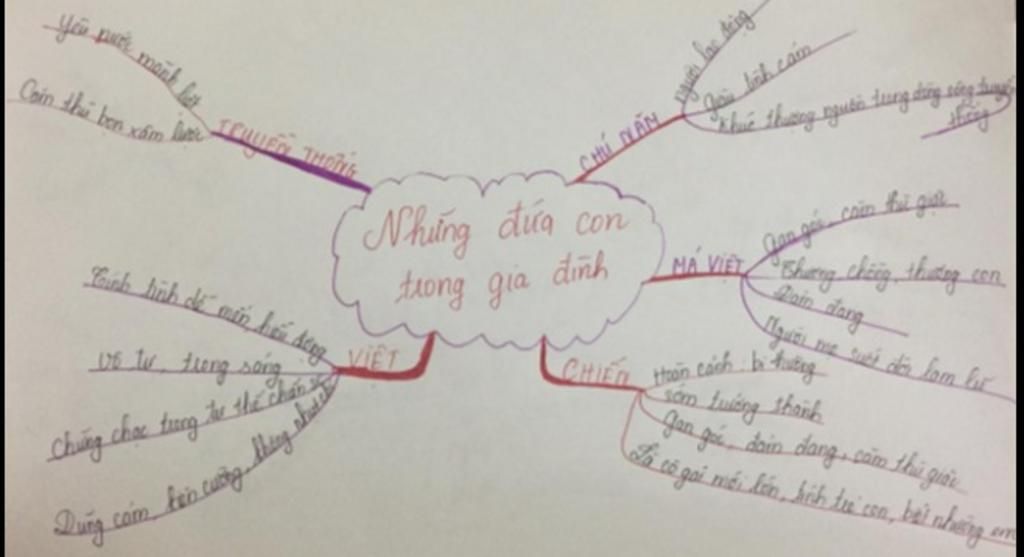 Những đứa con
trong gia đình
TRUYỀN THỐNG
Yêu nước mãnh liệt
Căm thù bọn xâm lược
CHÚ NĂM
người lao động
giàu tình cảm
khúc thượng nguồn trong dòng sông truyền
thống
MÁ VIỆT
Gan góc, căm thù giặc
Thương chồng, thương con
Đảm đang
Người mẹ suốt đời lam lũ
CHIẾN
Hoàn cảnh: bi thương
sớm trưởng thành
Gan góc, đảm đang, căm thù giặc
Là cô gái mới lớn, tính trẻ con, biết nhường em
VIỆT
Tính tình dễ mến, hiếu động
Vô tư, trong sáng
Chững chạc trong tư thế chiến sĩ
Dũng cảm, kiên cường, không khuất